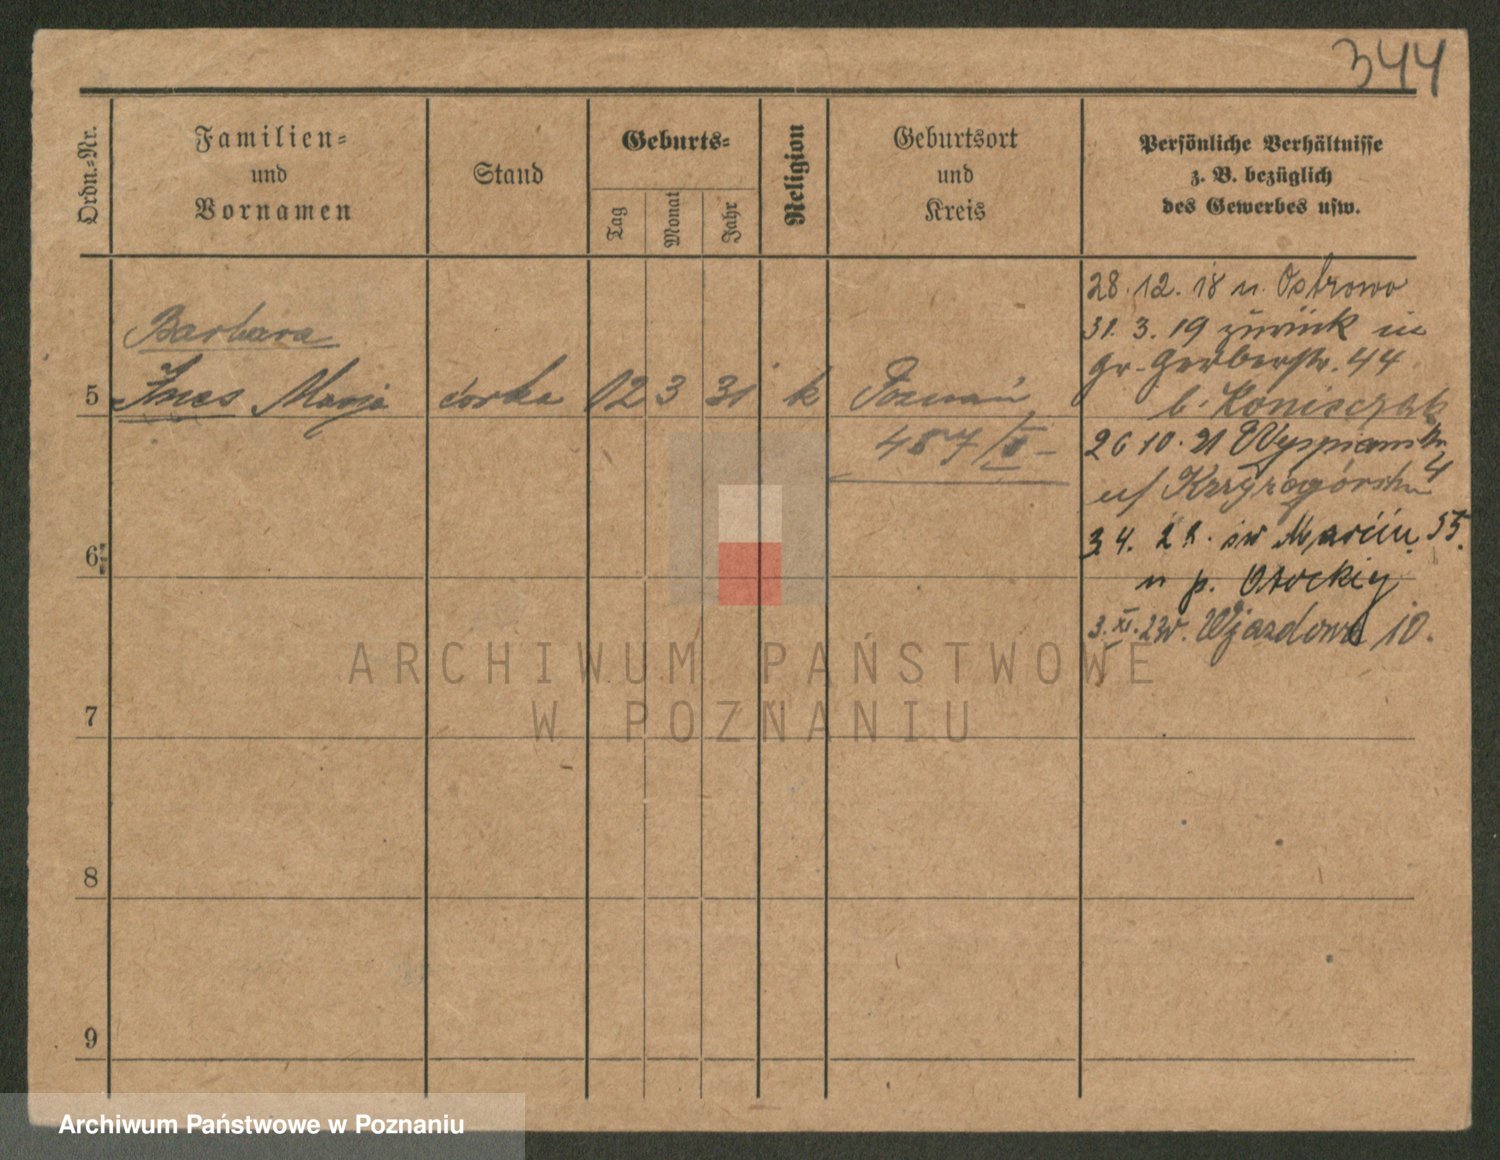 344
Ordn.-Nr.
Familien-
und
Vornamen
Stand
Geburts-
Tag
Monat
Jahr
Religion
Geburtsort
und
Kreis
Persönliche Verhältnisse
z. B. bezüglich
des Gewerbes usw.
28. 12. 18 n. Ostrowo
31. 3. 19 zurück in
Gr. Gerberstr. 44
b. Konieczak
26 10. 21
u/
3. 4. 22. św Marcin. 55.
u p. Otockiej
3. XI. Wjazdowa 10.
Barbara
5 Ines Marja córka 02 3 31 k Poznań
487/II
6
7
8
9
ARCHIWUM PAŃSTWOWE
W POZNANIU
Archiwum Państwowe w Poznaniu